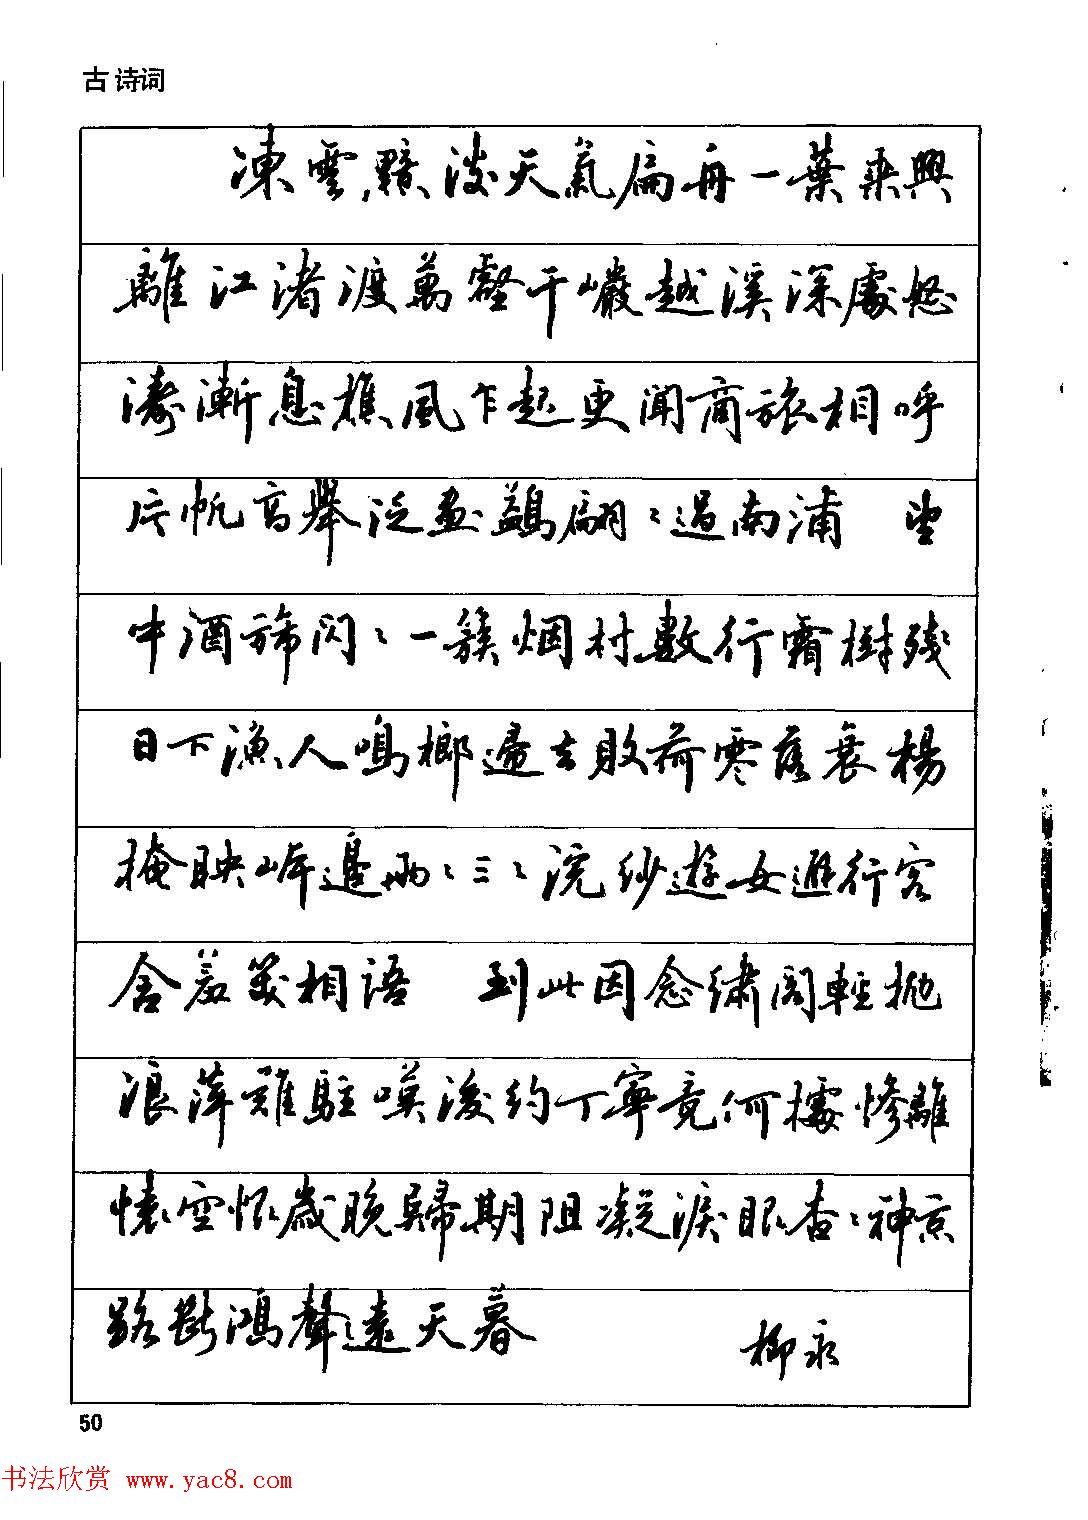 古诗词
凍雲黯淡天氣扁舟一葉乘興
離江渚渡萬壑千巖越溪深處怒
濤漸息樵風乍起更聞商旅相呼
片帆高舉泛畫鷁翩〻過南浦 望
中酒旆閃〻一簇烟村數行霜樹殘
日下漁人鳴榔歸去敗荷零落衰楊
掩映岸邊兩〻三〻浣紗遊女避行客
含羞笑相語 到此因念繡閣輕抛
浪萍難駐嘆後約丁寧竟何據慘離
懷空恨歲晚歸期阻凝淚眼杳〻神京
路斷鴻聲遠天暮
柳永
50
书法欣赏 www.yac8.com